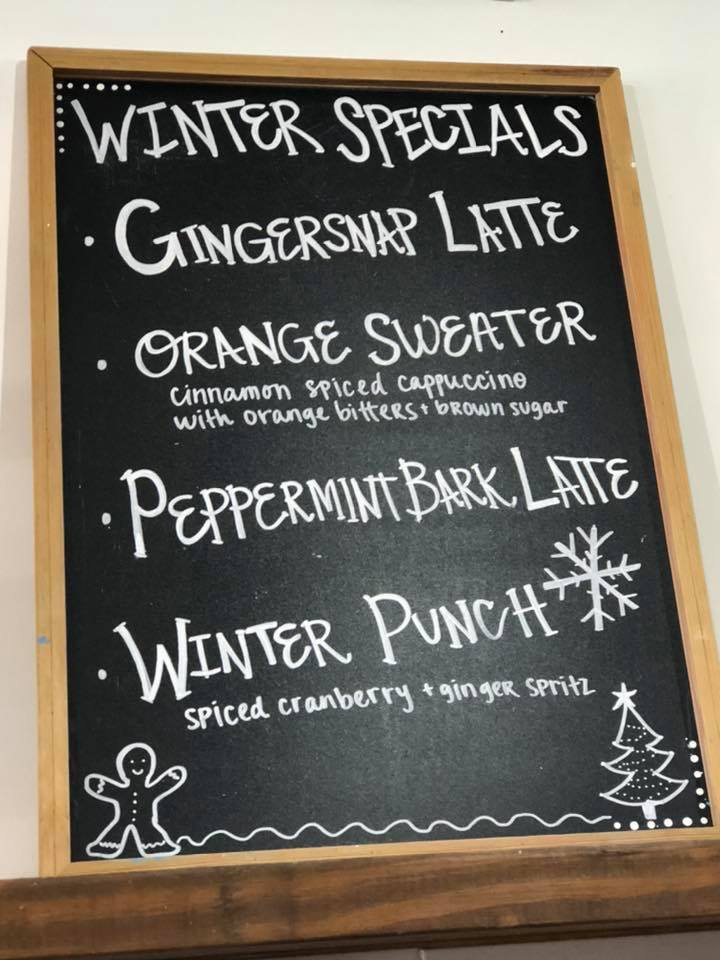 WINTER SPECIALS
· GINGERSNAP LATTE
· ORANGE SWEATER
cinnamon spiced cappuccino
with orange bitters + brown sugar
· PEPPERMINT BARK LATTE
· WINTER PUNCH
spiced cranberry + ginger spritz